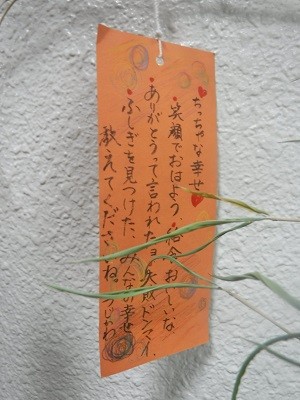 ♥ちっちゃな幸せ♥
・笑顔でおはよう・給食おいしいな
・ありがとうって言われたヨ・失敗ドンマイ、
・ふしぎを見つけた、みんなの幸せ
教えてくださいね。つじかわ